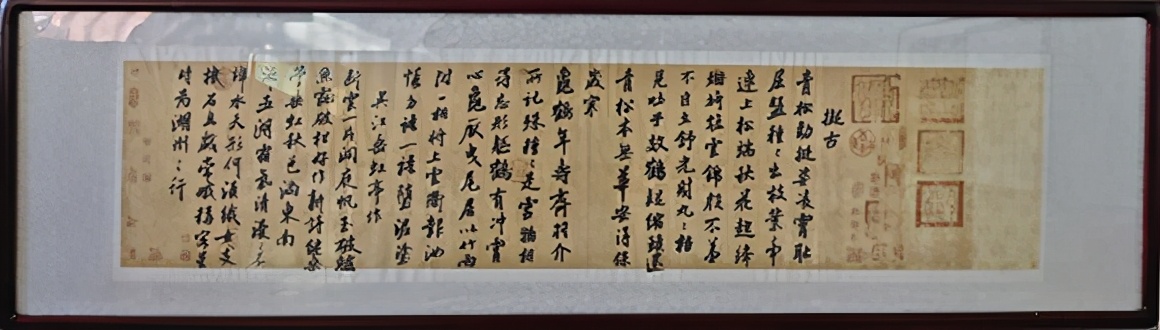 擬古
青松勁挺姿凌霄恥
屈盤種種出枝葉牽
連上松端秋花起絳
煙旖旎雲錦殷不羞
不自立舒光射丸丸柏
見吐子效鶴疑縮頸還
青松本無華安得保
歲寒
龜鶴年壽齊羽介
所託殊種種是靈物相
得忘形軀鶴有沖霄
心龜厭曳尾居以竹兩
附一相將上雲衢報汝
慎勿語一語墮泥塗
吳江垂虹亭作
斷雲一片洞庭帆玉破鱸
魚霜破柑好作新詩繼桑
苧垂虹秋色滿東南
五湖霜氣清漫漫不
辨水天形何須織女支
機石且戲常娥稱客星
時為湖州之行